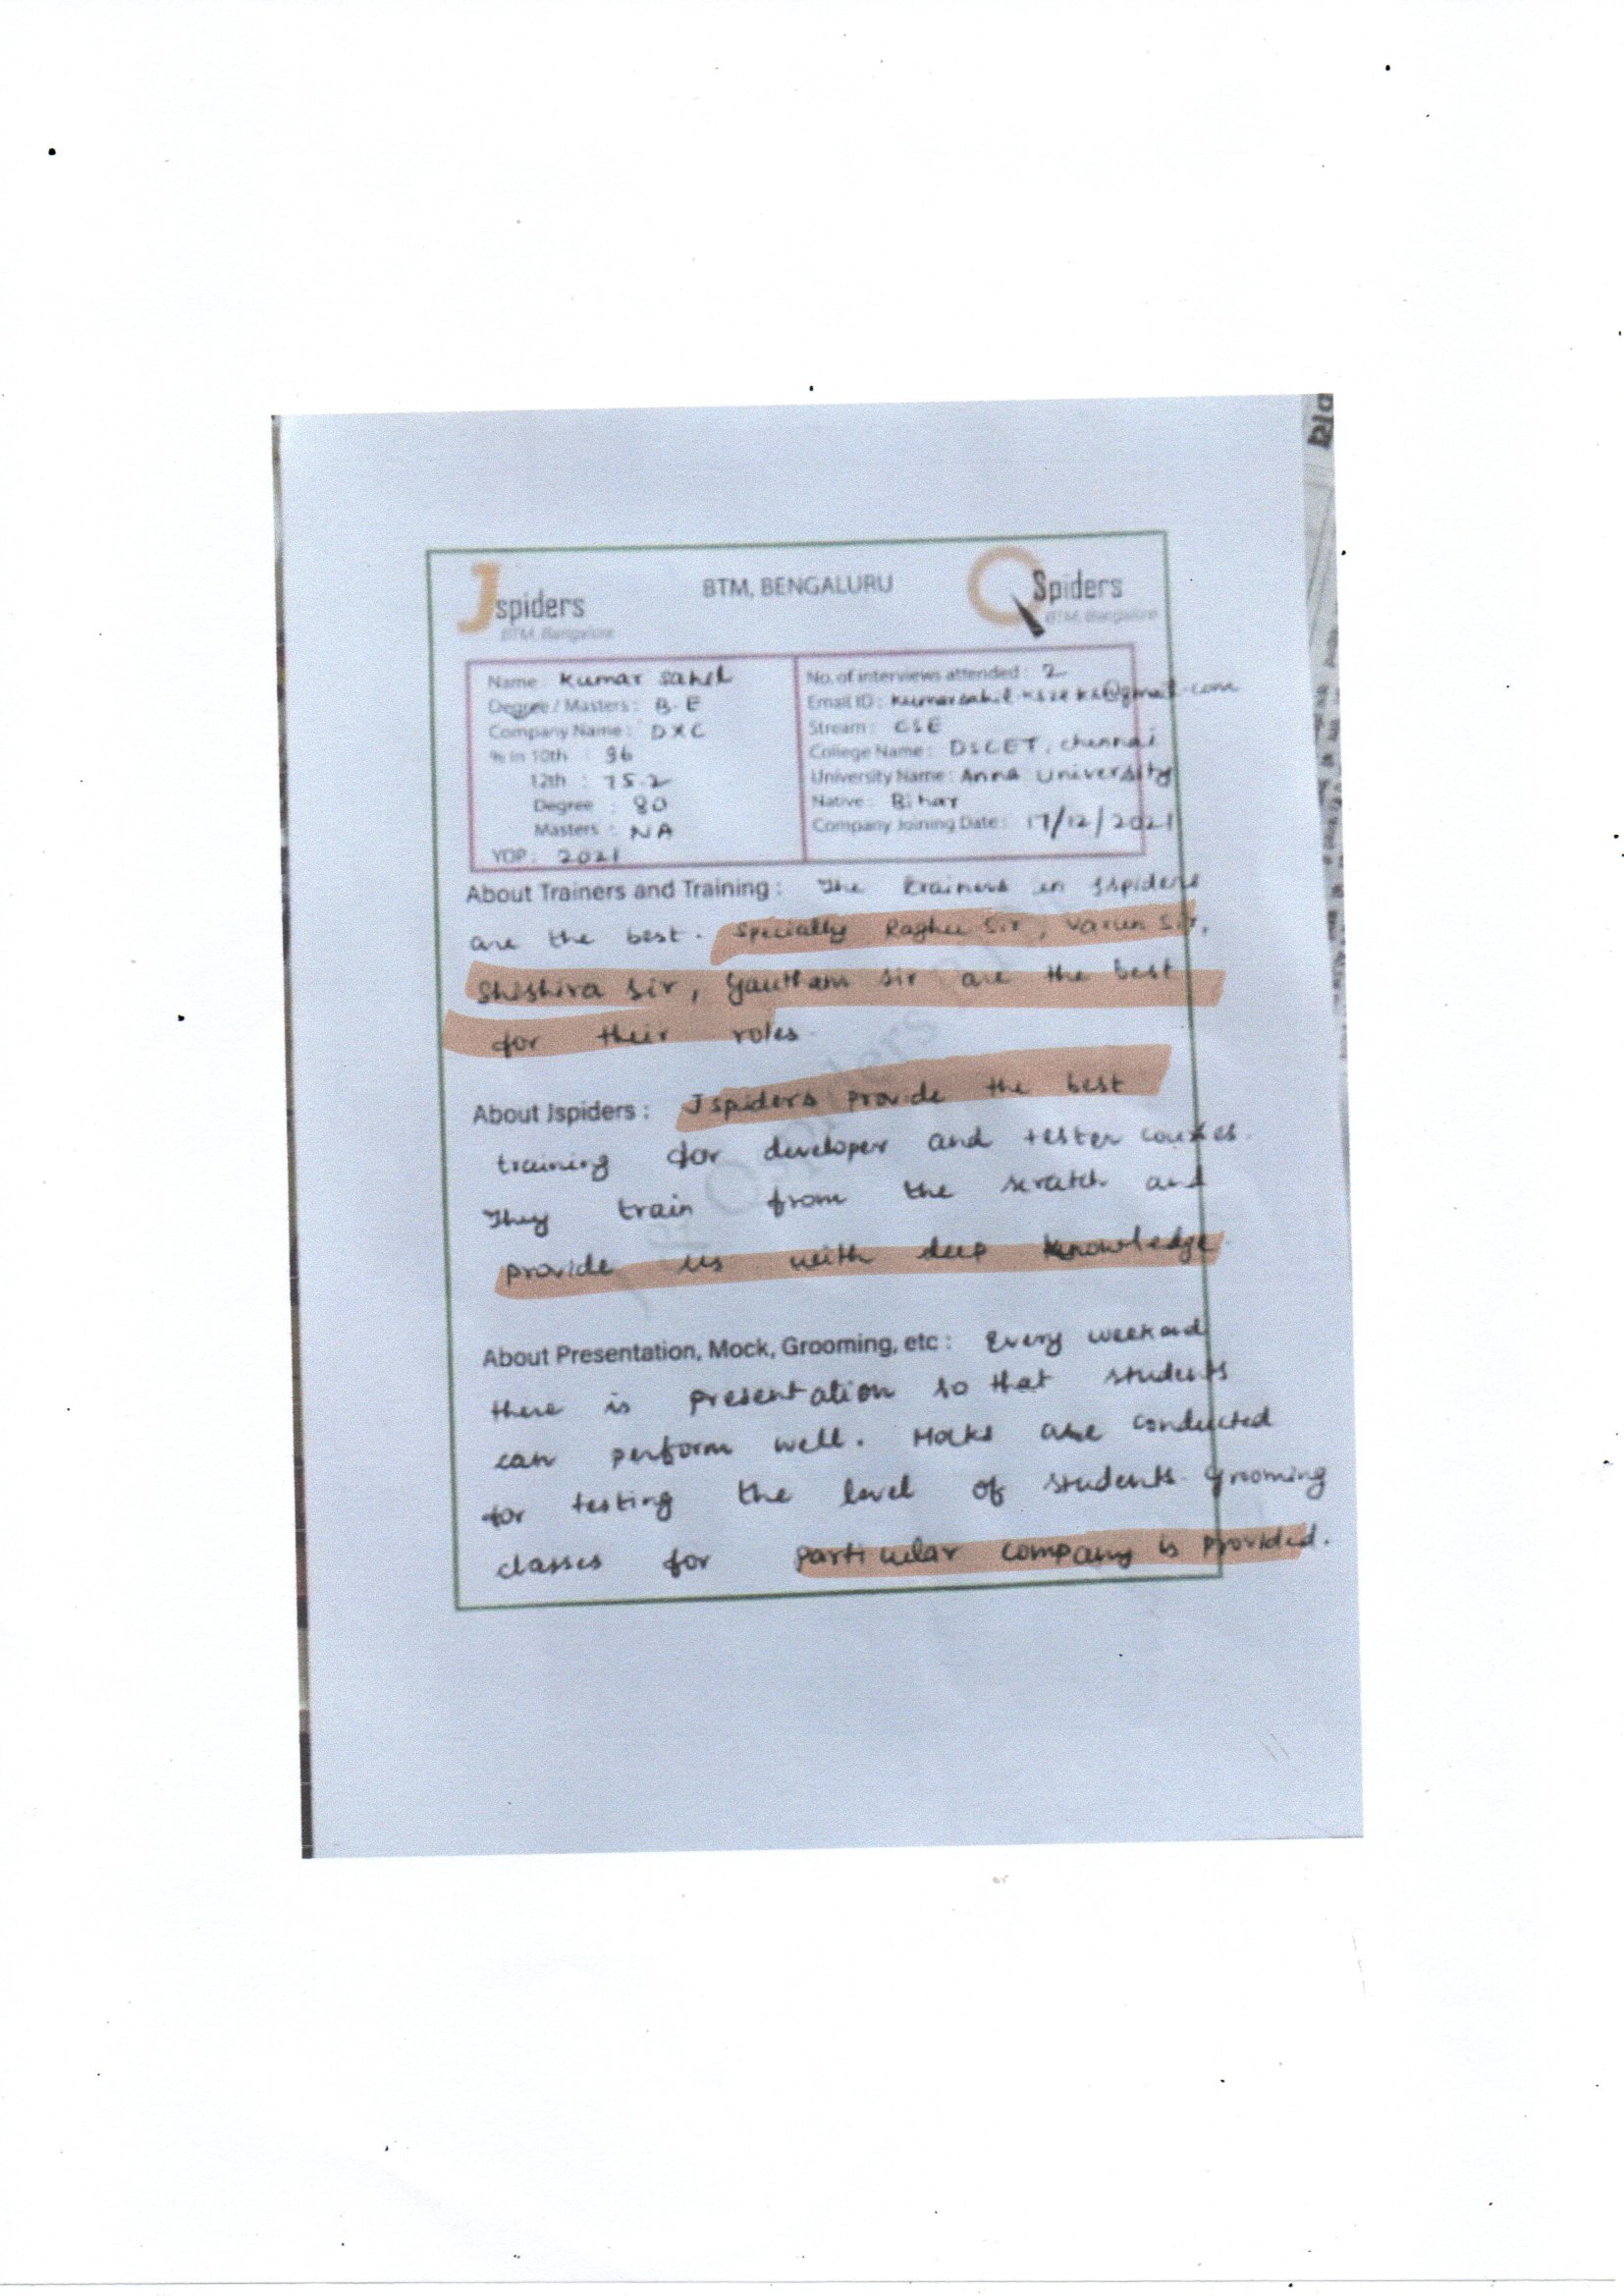 Jspiders
BTM, Bangalore
BTM, BENGALURU
QSpiders
BTM, Bangalore
Name Kumar Sahil
Degree / Masters : B.E
Company Name : DXC
% in 10th : 96
12th : 75.2
Degree : 80
Masters : NA
YOP : 2021
No. of interviews attended : 2
Email ID :
Stream : CSE
College Name : DSCET, chennai
University Name : Anna University
Native : Bihar
Company Joining Date : 17/12/2021
About Trainers and Training : The trainers in Jspiders
are the best. Specially Raghu Sir, Varun Sir,
Shishira Sir, Gautham Sir are the best
for their roles.
About Jspiders : Jspiders provide the best
training for developer and tester courses.
They train from the scratch and
provide us with deep knowledge.
About Presentation, Mock, Grooming, etc : Every weekend
there is presentation so that students
can perform well. Mocks are conducted
for testing the level of students. Grooming
classes for particular company is provided.